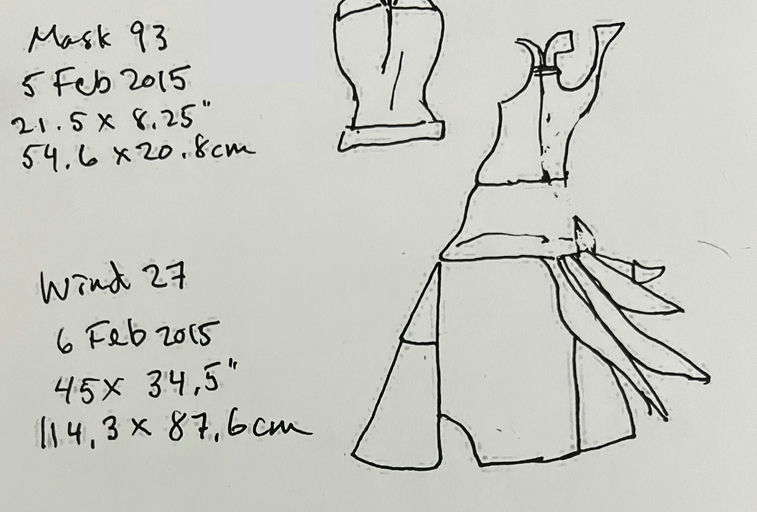 Mask 93
5 Feb 2015
21.5 x 8.25"
54.6 x 20.8cm
Wind 27
6 Feb 2015
45 x 34.5"
114.3 x 87.6cm